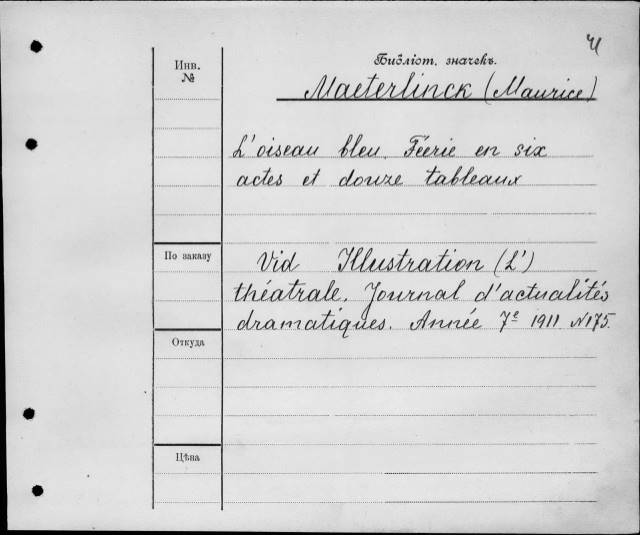 Инв.
№
Библіот. значекъ.
Maeterlinck (Maurice)
L'oiseau bleu. Féerie en six
actes et douze tableaux
По заказу
Vid Illustration (L')
théatrale. Journal d'actualités
dramatiques. Année 7e 1911. N175.
Откуда
Цѣна